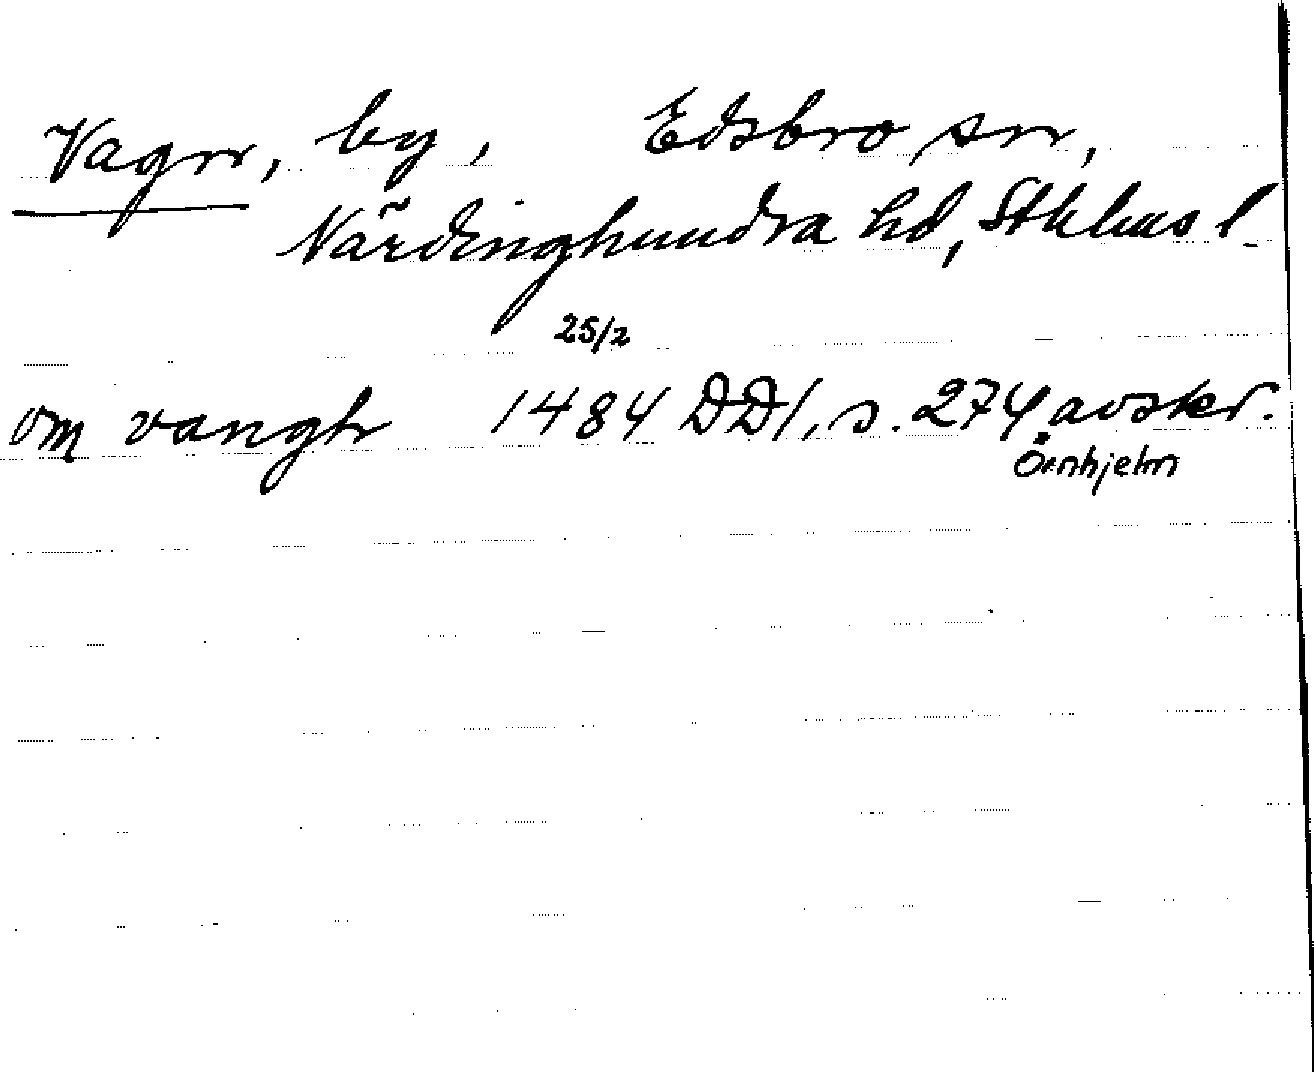 Vagn, by, Edsbro sn,
Närdinghundra hd, Sthlms l.
25/2
om vangh 1484 DD1, s. 274 avskr.
Örnhjelm